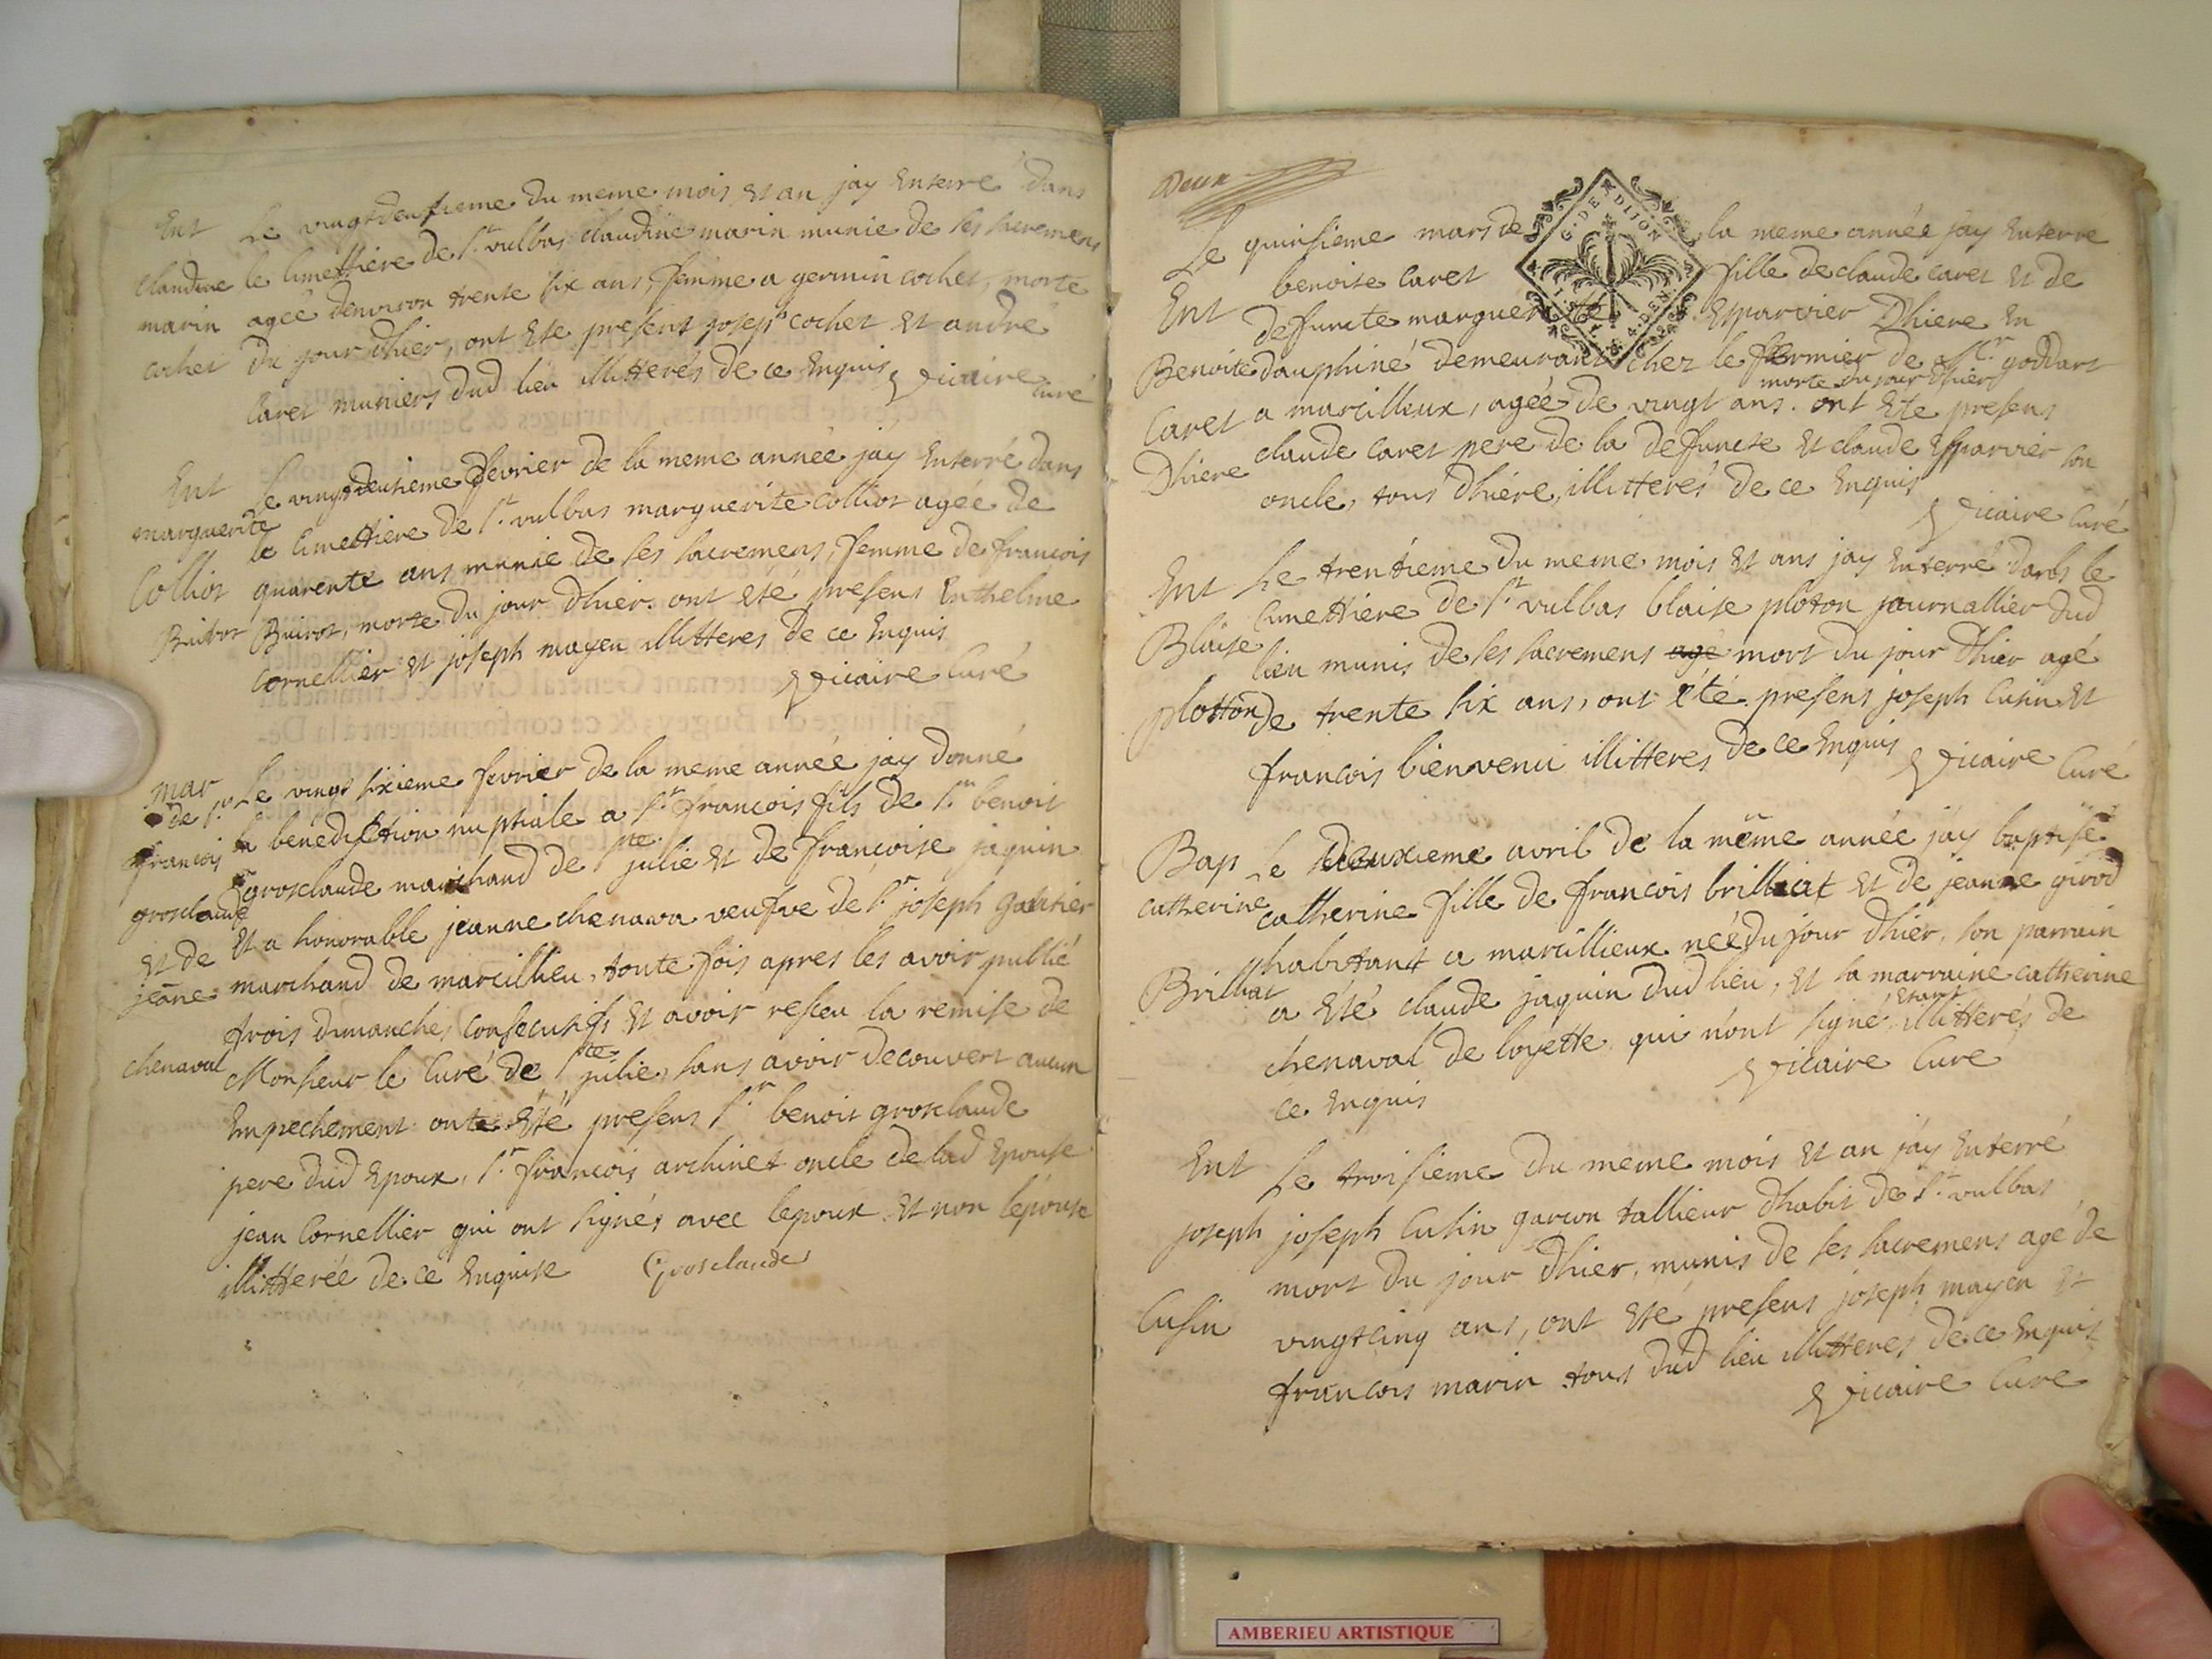 Ent Le vingtdeuxieme du meme mois et an jay enterré dans
claudine le cimettiere de st vulbas claudine marin munie de ses sacremens
marin agée denviron trente six ans, femme a germin cochet, morte
cochet du jour dhier, ont ete present joseph cochet et andre
caret muniers dud lieu illitteres de ce enquis Vicaire curé
Ent Le vingtdeuxieme fevrier de la meme année jay enterré dans
marguerite le cimettiere de st vulbas marguerite colliot agée de
Colliot quarente ans munie de ses sacremens, femme de francois
Buirot Buirot, morte du jour dhier. ont eté presens Enthelme
cornellier et joseph mayen illitteres de ce enquis
Vicaire curé
mar Le vingt sixieme fevrier de la meme année jay donné
de sr la benediction nuptiale a sr francois fils de sr benoit
francois grosclaude marchand de ste julie et de francoise jaquin
grosclaude et a honorable jeanne chenava veufve de sr joseph gautier
et de marchand de marcillieu, toute fois apres les avoir publié
jeane trois dimanches consecutifs et avoir resceu la remise de
chenaval Monsieur le Curé de ste julie, sans avoir decouvert aucun
empechement ont eté presens sr benoit grosclaude
pere dud epoux, sr francois archinet oncle de lad epouse
jean Cornellier qui ont signés avec lepoux et non lépouse
illitterée de ce enquise Grosclaude
Deux
G. DE DIJON
4 DEN.
Le quinsieme mars de la meme année jay enterre
Ent benoite caret fille de claude caret et de
defuncte marguerite Esparvier Dhiere en
Benoite dauphiné demeurant chez le fermier de Mr goddart
morte du jour dhier
Caret a marcilleux, agée de vingt ans. ont ete presens
Dhiere claude caret pere de la defuncte et claude Esparvier son
oncle, tous dhiére, illitterés de ce enquis
Vicaire Curé
Ent Le trentieme du meme mois et ans jay enterré dans le
cimettiere de st vulbas blaise ploton journallier dud
Blaise lieu munis de ses sacremens agé mort du jour dhier agé
plotton de trente six ans, ont été presens joseph Cusin et
francois bienvenu illitteres de ce enquis Vicaire Curé
Bap Le deuxieme avril de la même année jáy baptisé
catherine catherine fille de francois brilliat et de jeanne girod
habitant a marcillieux neé du jour dhier, son parrain
Brilliat a été claude jaquin dud lieu, et sa marraine catherine
etant
chenaval de loyette qui n'ont signé illitterés de
ce enquis Vicaire Cure
Ent Le troisieme du meme mois et an jáy enterré
joseph joseph Cusin garçon tallieur dhabit de st vulbas
mort du jour dhier, munis de ses sacremens agé de
Cusin vingtcinq ans, ont eté presens joseph mayen et
francois marin tous dud lieu illitterés de ce enquis
Vicaire Curé
AMBERIEU ARTISTIQUE